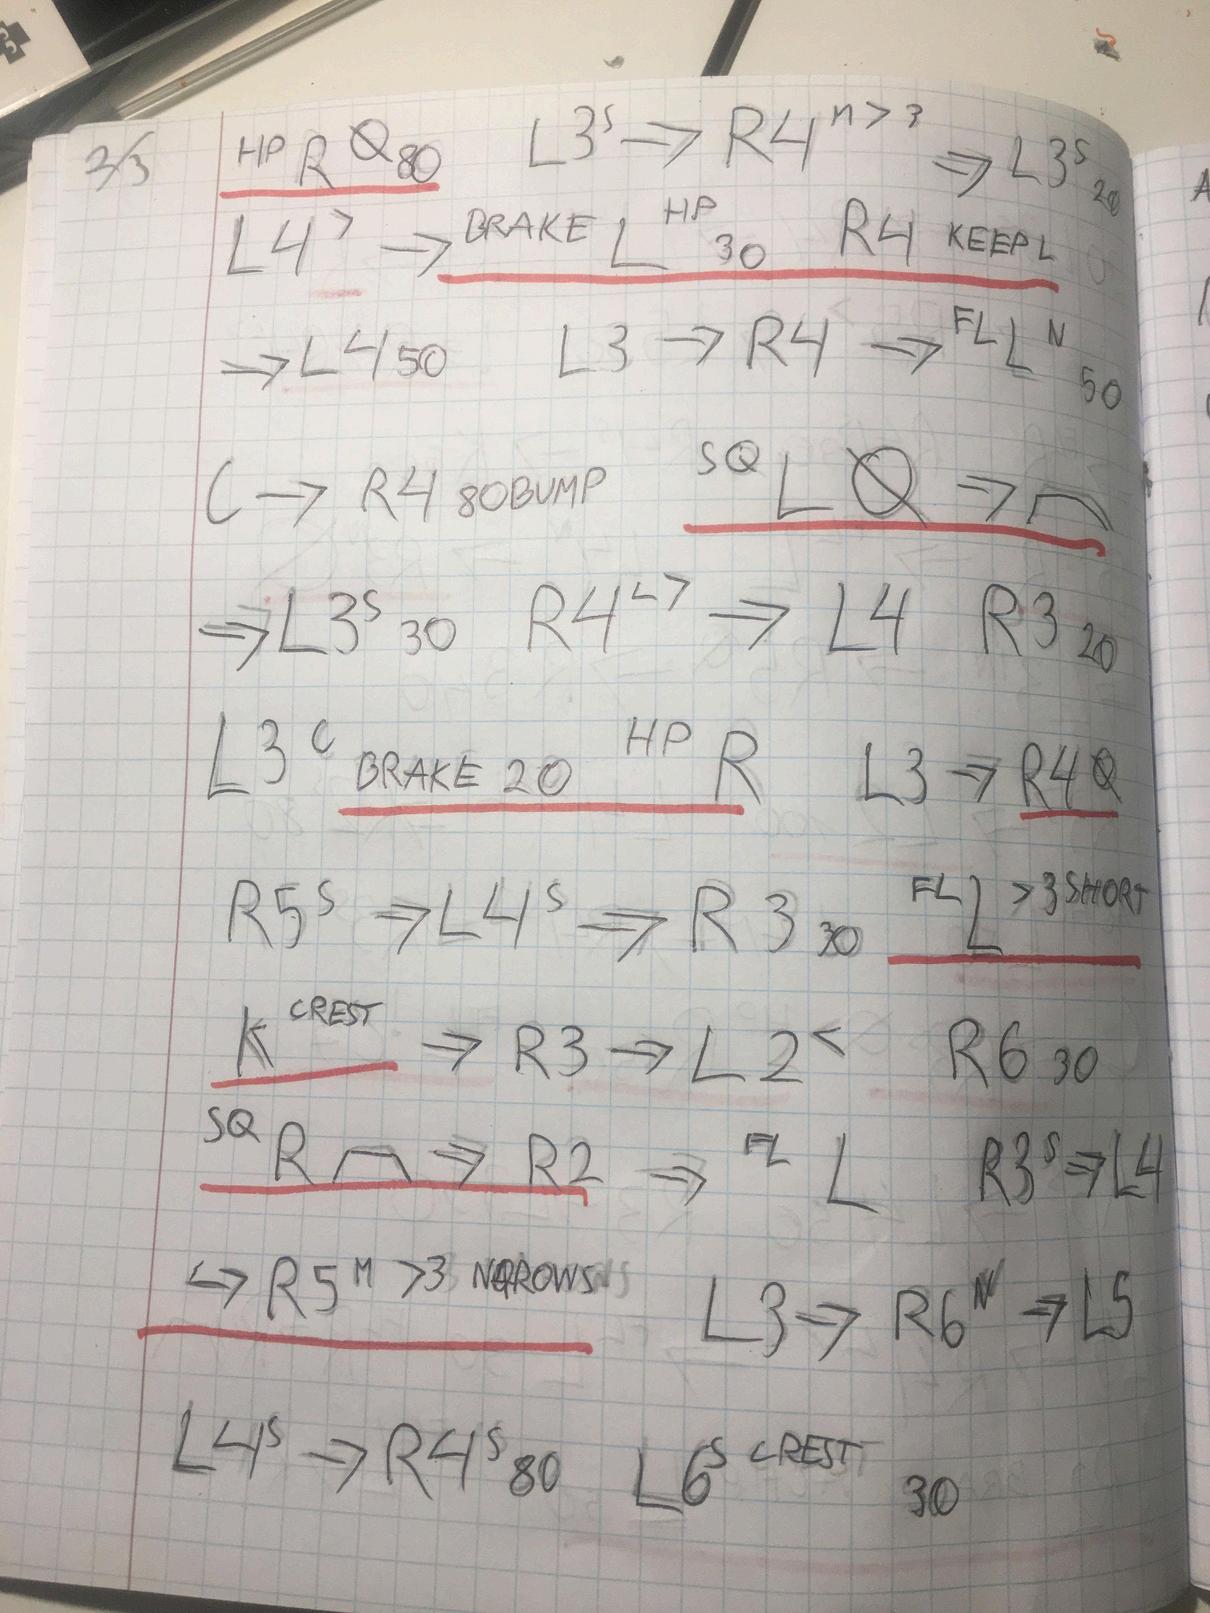 3/3 HP R Q 80 L3 S → R4 M > 3 → L3 S 20
L4 > → BRAKE L HP 30 R4 KEEP L
→ L4 50 L3 → R4 → FL L N 50
C → R4 80 BUMP SQ L Q →
→ L3 S 30 R4 L > → L4 R3 20
L3 C BRAKE 20 HP R L3 → R4 Q
R5 S → L4 S → R3 30 FL L > 3 SHORT
K CREST → R3 → L2 < R6 30
SQ R → R2 → FL L R3 S → L4
↪ R5 M > 3 NARROWS L3 → R6 N → L5
L4 S → R4 S 80 L6 S CREST 30